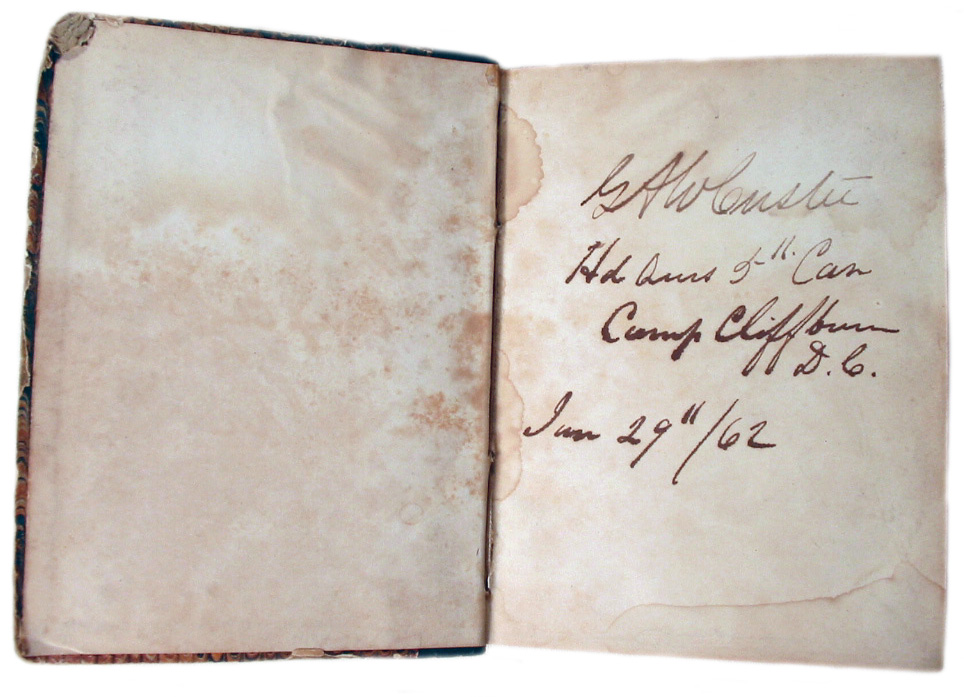 G A W Custer
Hd Qurs 5" Cav
Camp Cliffburn
D.C.
Jan 29"/62